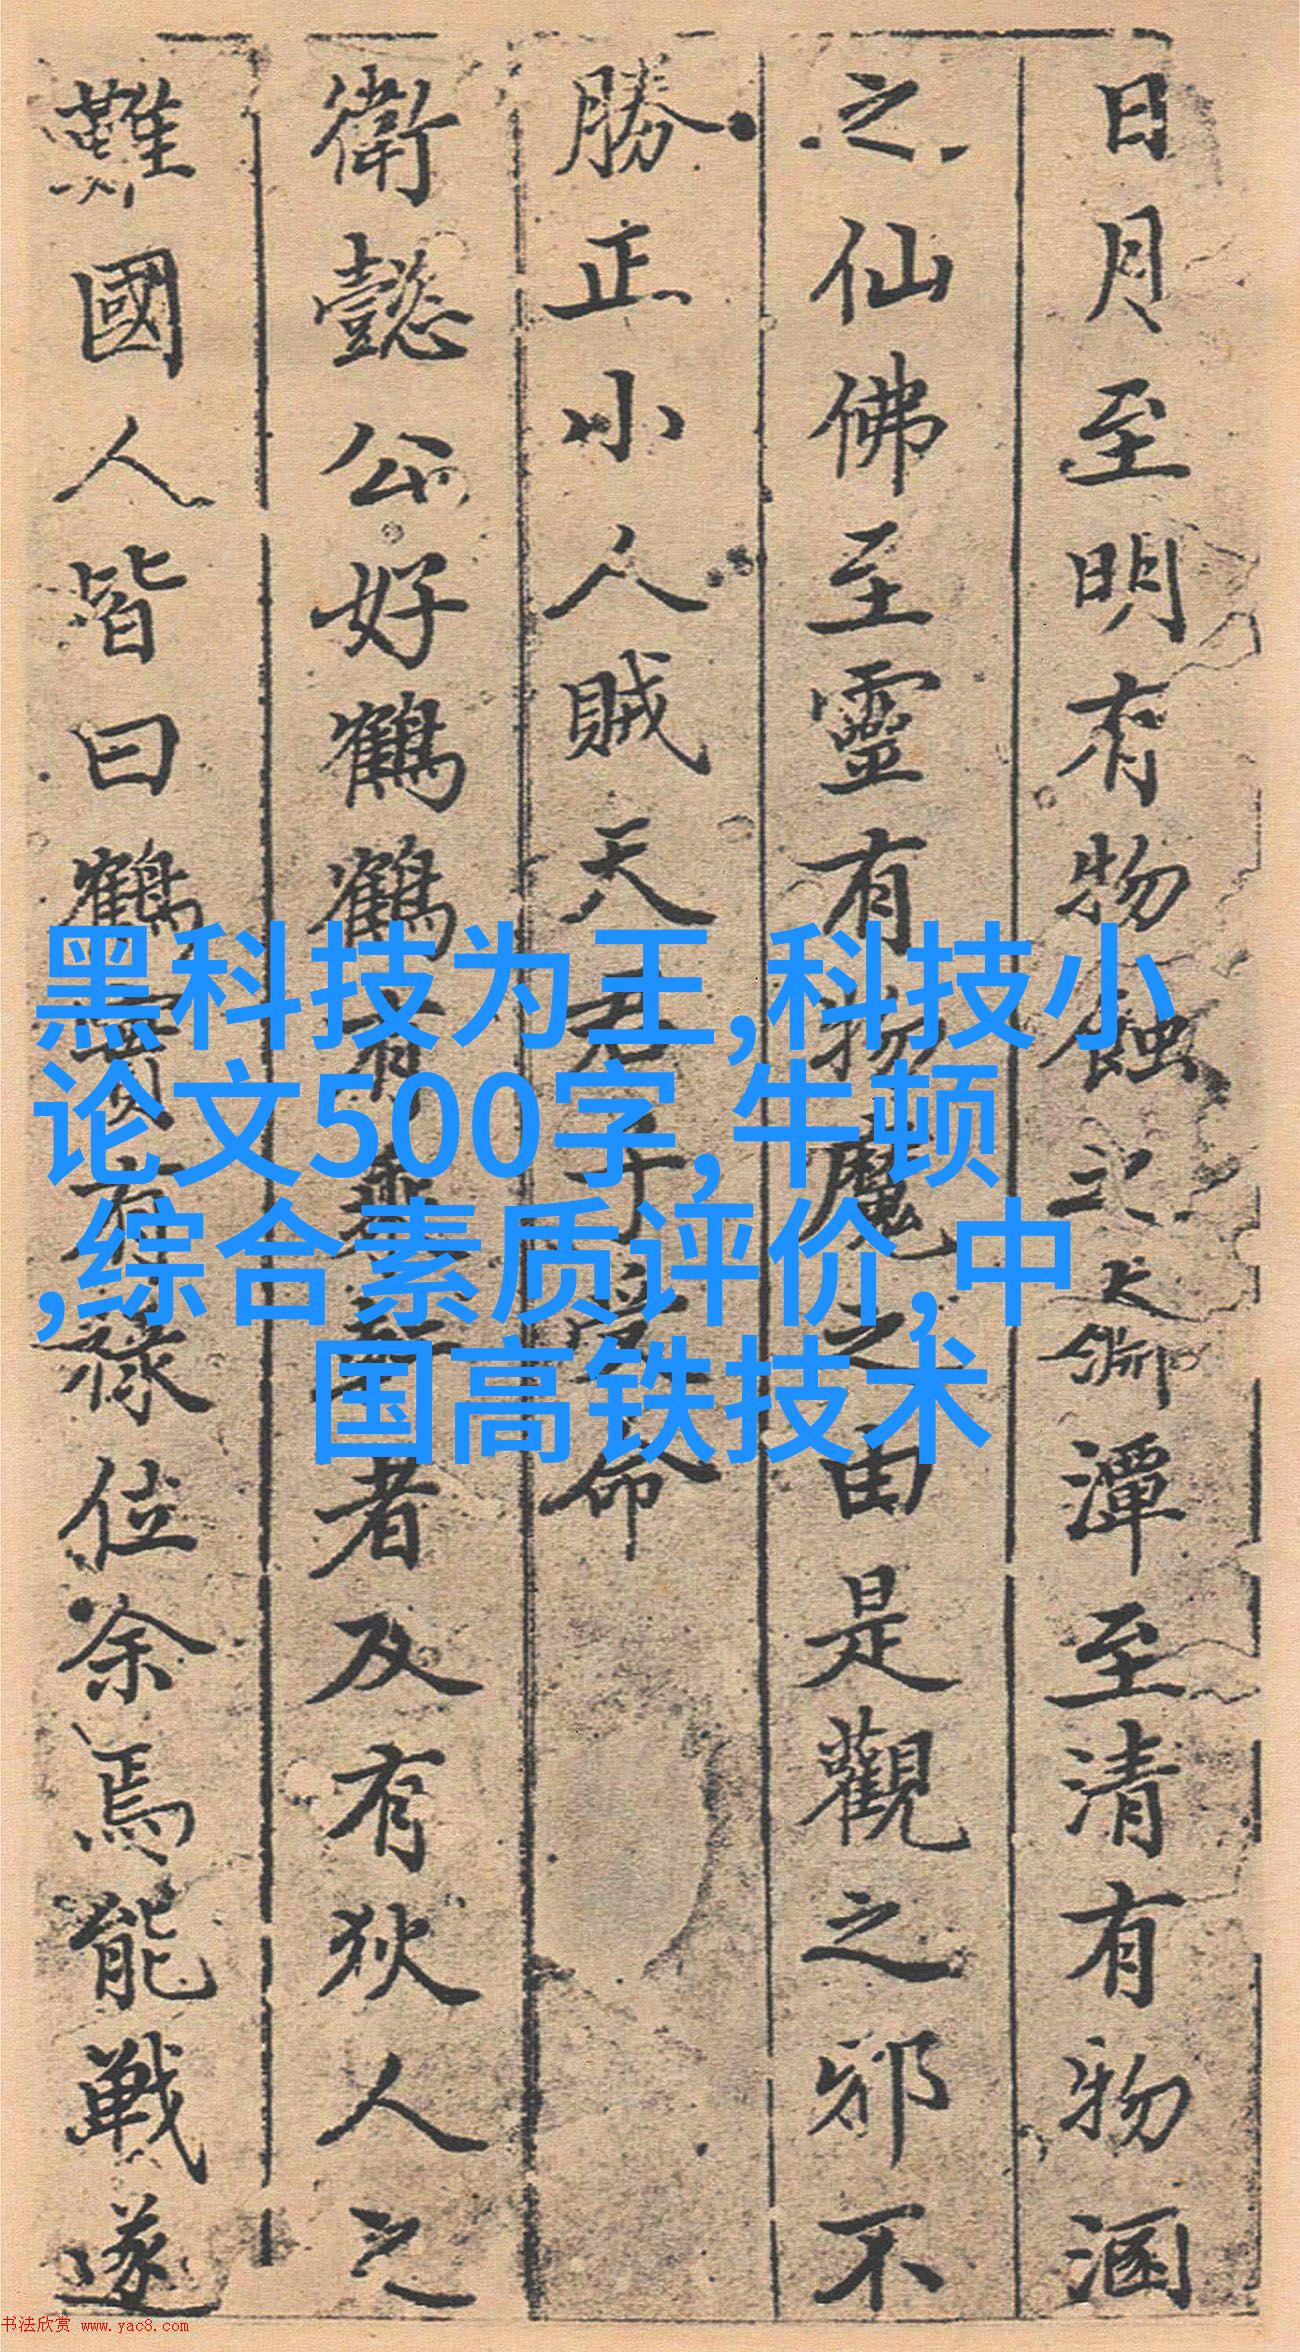 日月至明有物蝕之大淵潭至清有物涵
之仙佛至靈有物魔之由是觀之邪不
勝正小人賊天君子受命
衛懿公好鶴鶴有乘軒者及有狄人之
難國人皆曰鶴實有祿位余焉能戰遂
黑科技为王,科技小
论文500字,牛顿
,综合素质评价,中
国高铁技术
书法欣赏 www.yac8.com